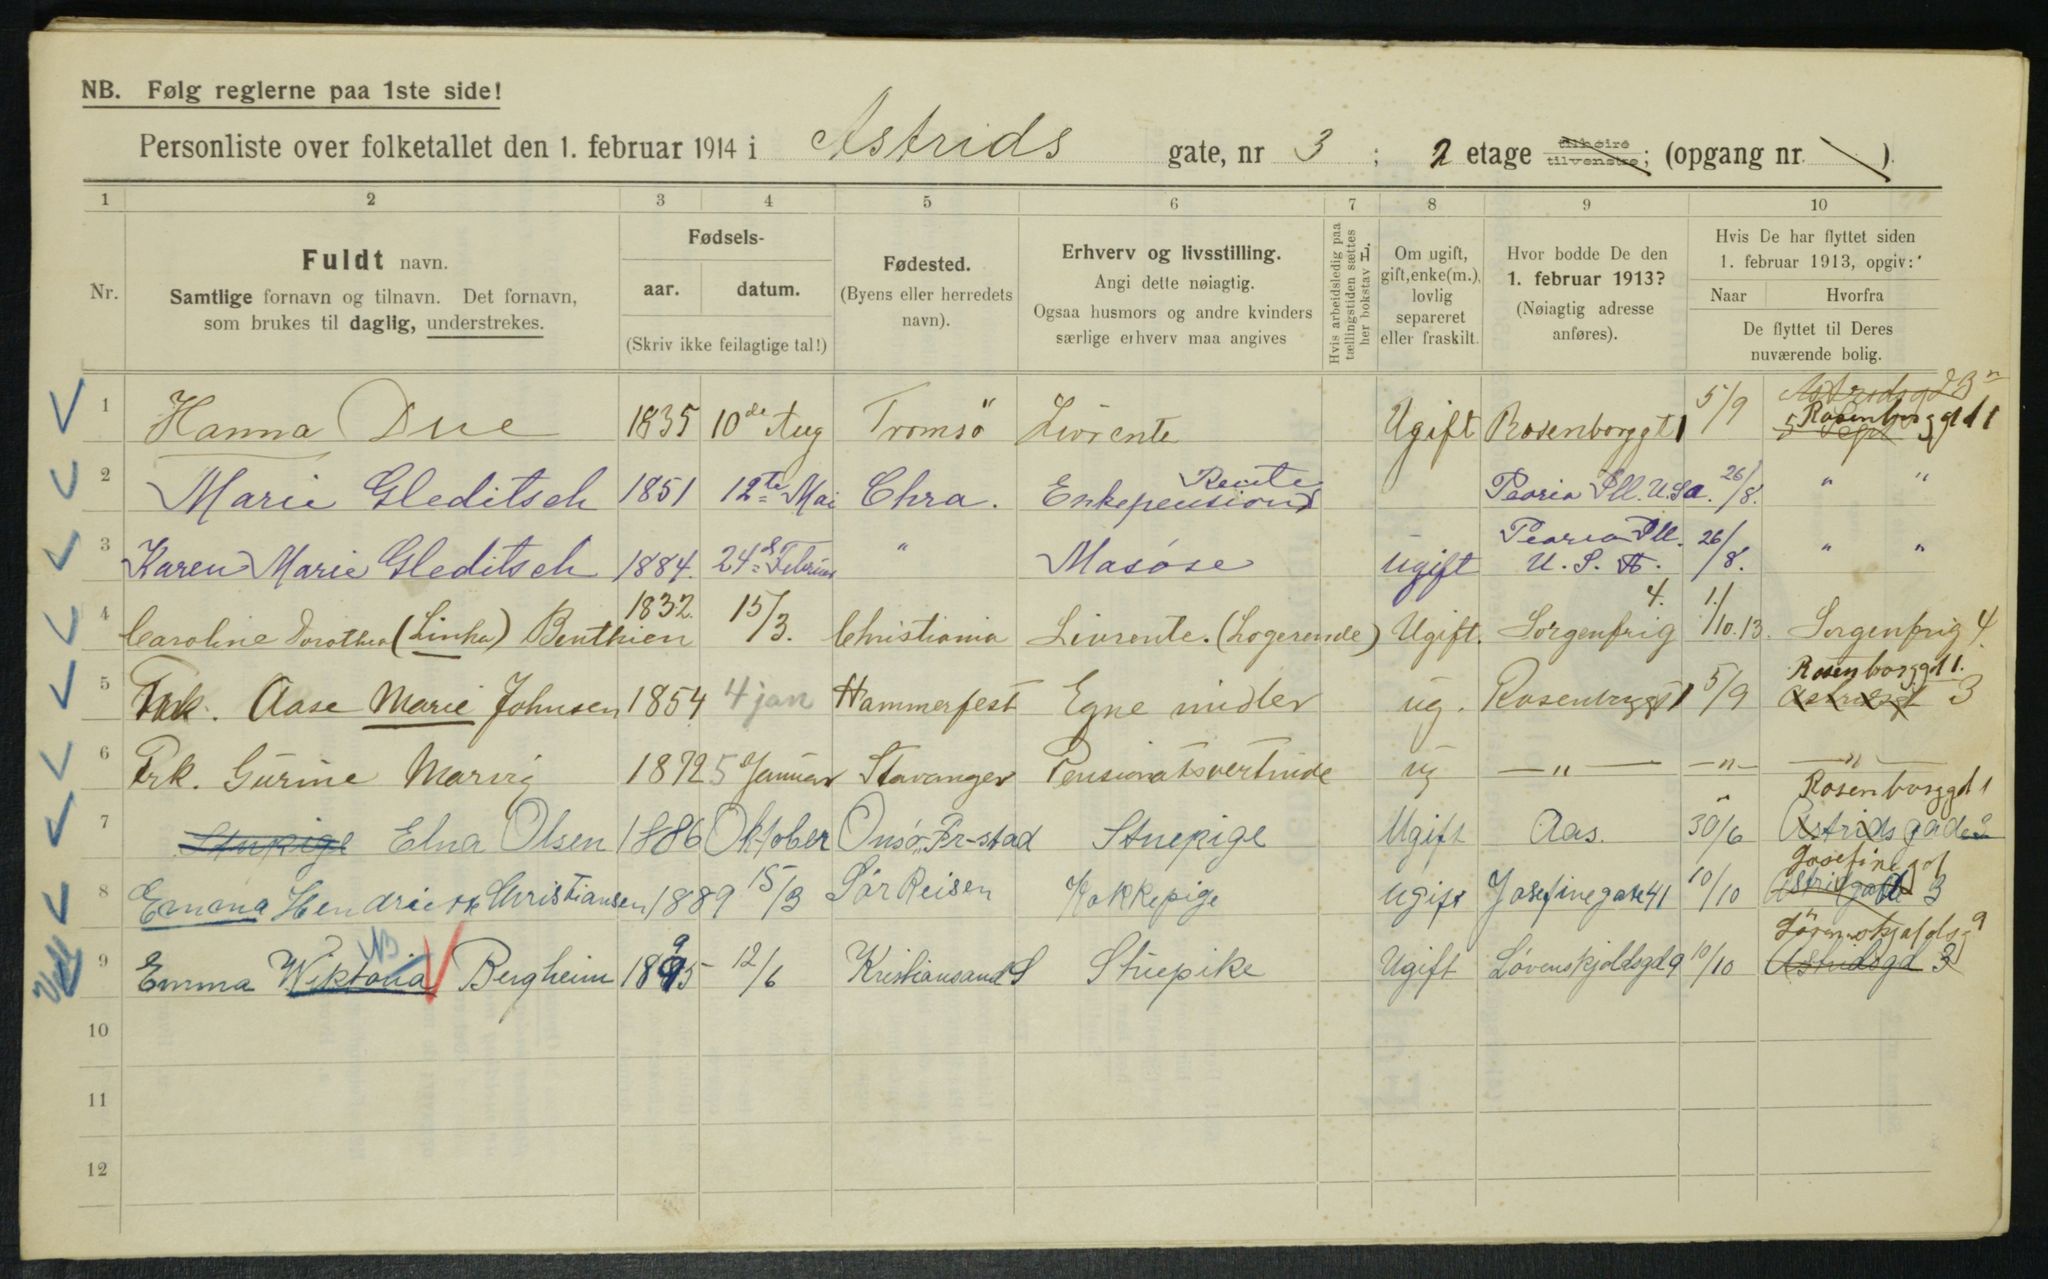 NB. Følg reglerne paa 1ste side!
Personliste over folketallet den 1. februar 1914 i Astrids gate, nr 3 ; 2 etage tilhøire tilvenstre; (opgang nr. )
1 2 3 4 5 6 7 8 9 10
Nr.
Fuldt navn.
Samtlige fornavn og tilnavn. Det fornavn,
som brukes til daglig, understrekes.
Fødsels-
aar. datum.
(Skriv ikke feilagtige tal!)
Fødested.
(Byens eller herredets
navn).
Erhverv og livsstilling.
Angi dette nøiagtig.
Ogsaa husmors og andre kvinders
særlige erhverv maa angives
Hvis arbeidsledig paa
tællingstiden sættes
her bokstav L.
Om ugift,
gift, enke(m.),
lovlig
separeret
eller fraskilt.
Hvor bodde De den
1. februar 1913?
(Nøiagtig adresse
anføres).
Hvis De har flyttet siden
1. februar 1913, opgiv:
Naar Hvorfra
De flyttet til Deres
nuværende bolig.
1 Hanna Due 1835 10de Aug Tromsö Livrente Ugift Rosenborggt 1 5/9 Rosenborggd 1
2 Marie Gleditsch 1851 12te Mai Chra. Enkepension Rente Peoria Ill. U.S.A. 26/8. " "
3 Karen Marie Gleditsch 1884. 24de Februar " Masøse Ugift Peoria Ill. U. S. A. 26/8. " "
4 Caroline Dorothea (Linka) Benthien 1832. 15/3. Christiania Livrente. (Logerende) Ugift. Sorgenfrig 4. 1/10.13. Sorgenfrig 4
5 Frk. Aase Marie Johnsen 1854 4 jan Hammerfest Egne midler ug. Rosenborggt 1 5/9 Rosenborggd 1. 3
6 Frk. Gurine Marvig 1872 5 Januar Stavanger Pensionatsvertinde ug — " — — " — — " —
7 Stuepige Elna Olsen 1886 Oktober Onsö, Fr-stad Stuepige Ugift Aas. 30/6 Rosenborggd 1 Astridsgade
8 Emma Hendriette Christiansen 1889 15/3 Sör Reisen Kokkepige Ugift Josefinegate 41 10/10 Josefinegd 3
9 Emma Wiktoria Bergheim 1895 12/6 Kristiansand S Stuepike Ugift Løvenskjoldsgd 9 10/10 Lövenskjoldsg 9 Astridsgd 3
10
11
12